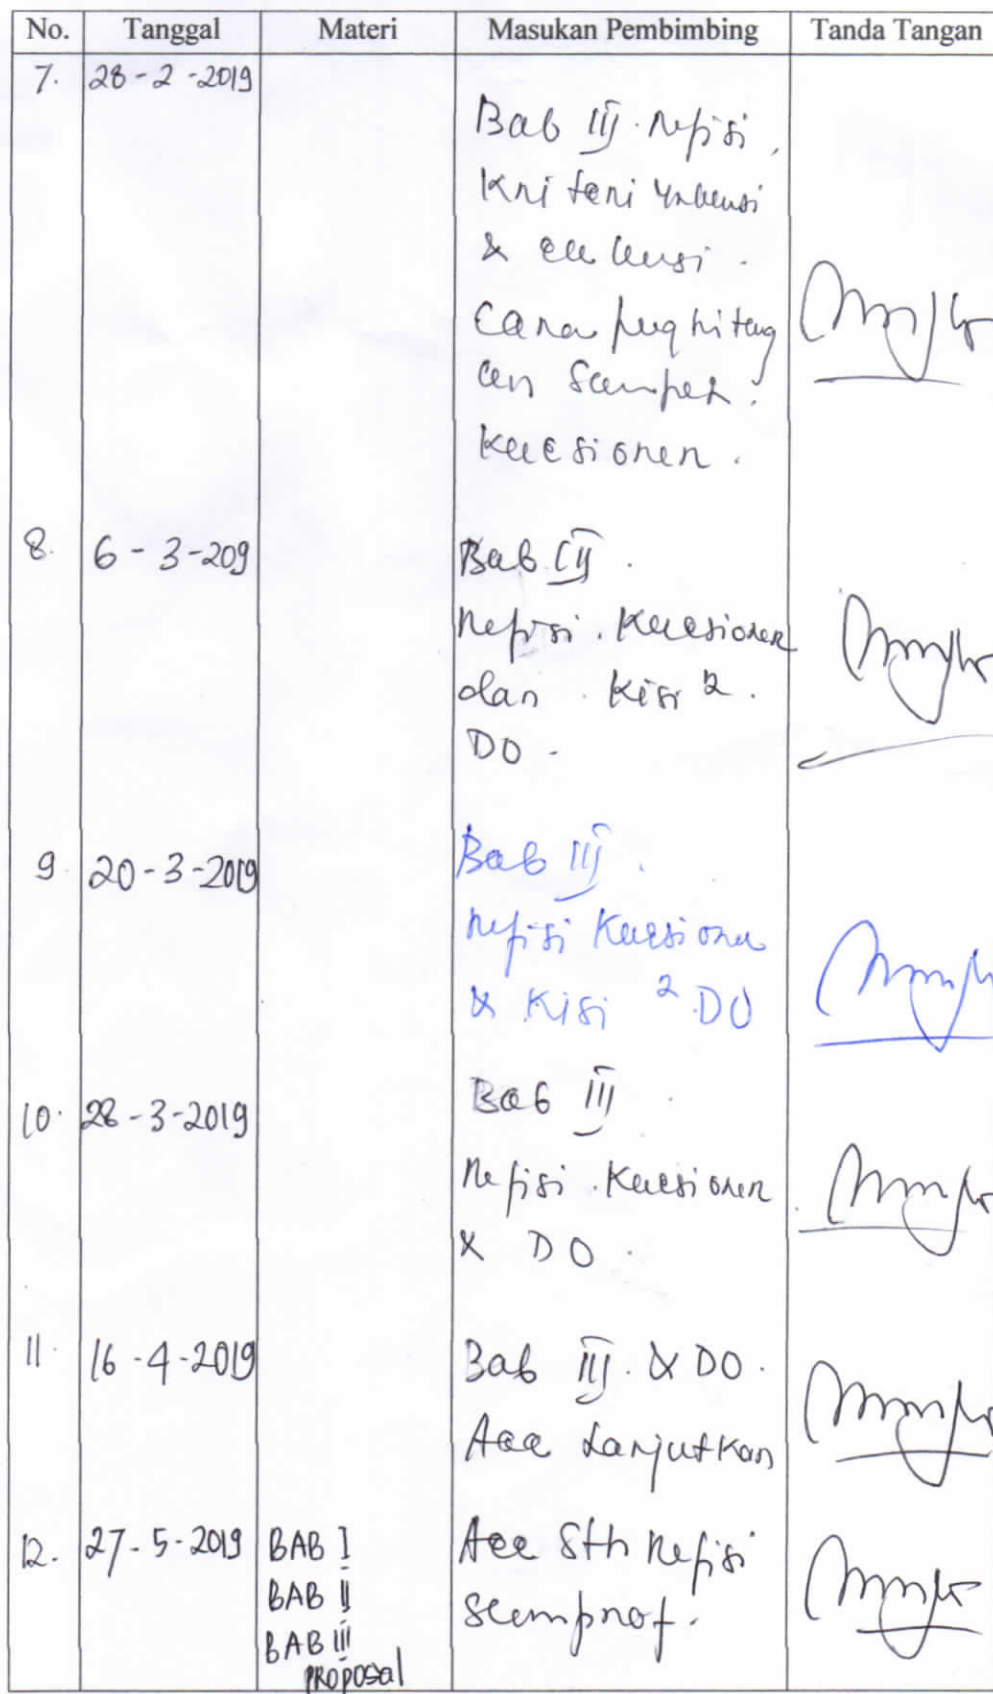 No. Tanggal Materi Masukan Pembimbing Tanda Tangan
7. 28-2-2019
Bab III. Refisi,
Kriteri inklusi
& eklusi.
Cara penghitung
an Sampel.
Kuesioner.
8. 6-3-209 Bab III.
Refisi. Kuesioner
dan. Kisi 2.
DO.
9. 20-3-2019 Bab III.
Refisi Kuesioner
& Kisi 2 DO
10. 28-3-2019 Bab III.
Refisi. Kuesioner
& DO.
11. 16-4-2019 Bab III. & DO.
Acc Lanjutkan
12. 27-5-2019 BAB I Acc Sth Refisi
BAB II Semprof.
BAB III
PROPOSAL